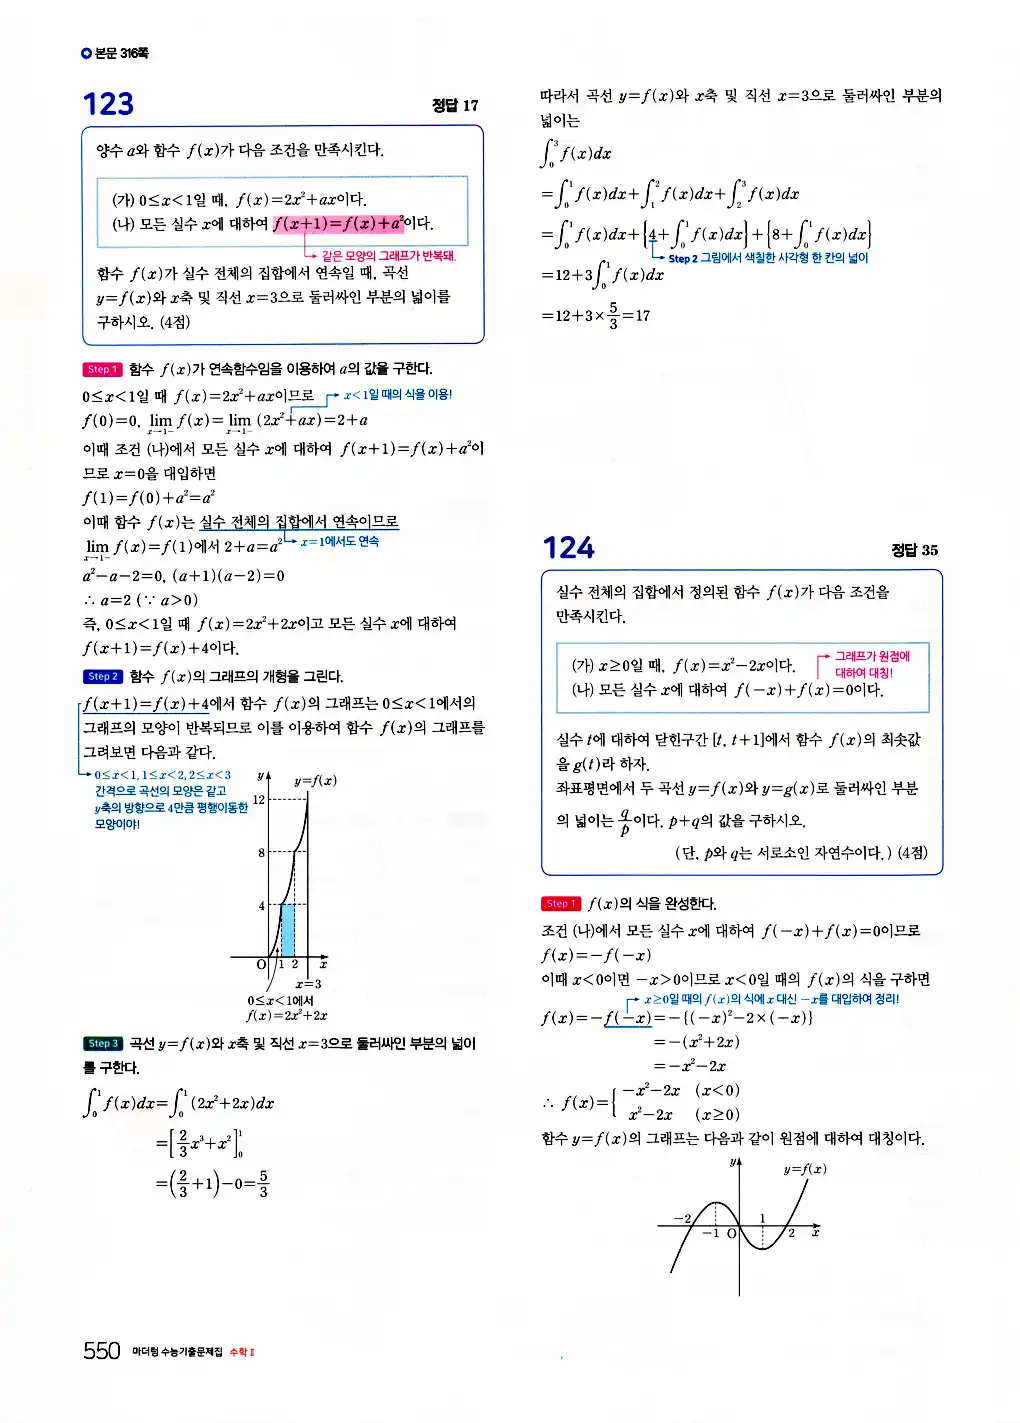 본문 316쪽
123
정답 17
양수 a와 함수 f(x)가 다음 조건을 만족시킨다.
(가) 0≤x<1일 때, f(x)=2x²+ax이다.
(나) 모든 실수 x에 대하여 f(x+1)=f(x)+a²이다.
같은 모양의 그래프가 반복돼.
함수 f(x)가 실수 전체의 집합에서 연속일 때, 곡선
y=f(x)와 x축 및 직선 x=3으로 둘러싸인 부분의 넓이를
구하시오. (4점)
Step 1 함수 f(x)가 연속함수임을 이용하여 a의 값을 구한다.
0≤x<1일 때 f(x)=2x²+ax이므로
x<1일 때의 식을 이용!
f(0)=0, lim x→1- f(x)=lim x→1- (2x²+ax)=2+a
이때 조건 (나)에서 모든 실수 x에 대하여 f(x+1)=f(x)+a²이
므로 x=0을 대입하면
f(1)=f(0)+a²=a²
이때 함수 f(x)는 실수 전체의 집합에서 연속이므로
lim x→1- f(x)=f(1)에서 2+a=a²
x=1에서도 연속
a²-a-2=0, (a+1)(a-2)=0
∴ a=2 (∵ a>0)
즉, 0≤x<1일 때 f(x)=2x²+2x이고 모든 실수 x에 대하여
f(x+1)=f(x)+4이다.
Step 2 함수 f(x)의 그래프의 개형을 그린다.
f(x+1)=f(x)+4에서 함수 f(x)의 그래프는 0≤x<1에서의
그래프의 모양이 반복되므로 이를 이용하여 함수 f(x)의 그래프를
그려보면 다음과 같다.
0≤x<1, 1≤x<2, 2≤x<3
간격으로 곡선의 모양은 같고
y축의 방향으로 4만큼 평행이동한
모양이야!
y
y=f(x)
12
8
4
O 1 2 x
x=3
0≤x<1에서
f(x)=2x²+2x
Step 3 곡선 y=f(x)와 x축 및 직선 x=3으로 둘러싸인 부분의 넓이
를 구한다.
∫₀¹ f(x)dx=∫₀¹ (2x²+2x)dx
=[2/3 x³+x²]₀¹
=(2/3+1)-0=5/3
따라서 곡선 y=f(x)와 x축 및 직선 x=3으로 둘러싸인 부분의
넓이는
∫₀³ f(x)dx
=∫₀¹ f(x)dx+∫₁² f(x)dx+∫₂³ f(x)dx
=∫₀¹ f(x)dx+{4+∫₀¹ f(x)dx}+{8+∫₀¹ f(x)dx}
Step 2 그림에서 색칠한 사각형 한 칸의 넓이
=12+3∫₀¹ f(x)dx
=12+3×5/3=17
124
정답 35
실수 전체의 집합에서 정의된 함수 f(x)가 다음 조건을
만족시킨다.
(가) x≥0일 때, f(x)=x²-2x이다.
그래프가 원점에
대하여 대칭!
(나) 모든 실수 x에 대하여 f(-x)+f(x)=0이다.
실수 t에 대하여 닫힌구간 [t, t+1]에서 함수 f(x)의 최솟값
을 g(t)라 하자.
좌표평면에서 두 곡선 y=f(x)와 y=g(x)로 둘러싸인 부분
의 넓이는 q/p이다. p+q의 값을 구하시오.
(단, p와 q는 서로소인 자연수이다.) (4점)
Step 1 f(x)의 식을 완성한다.
조건 (나)에서 모든 실수 x에 대하여 f(-x)+f(x)=0이므로
f(x)=-f(-x)
이때 x<0이면 -x>0이므로 x<0일 때의 f(x)의 식을 구하면
x≥0일 때의 f(x)의 식에 x 대신 -x를 대입하여 정리!
f(x)=-f(-x)=-{(-x)²-2×(-x)}
=-(x²+2x)
=-x²-2x
∴ f(x)={ -x²-2x (x<0)
x²-2x (x≥0)
함수 y=f(x)의 그래프는 다음과 같이 원점에 대하여 대칭이다.
y
y=f(x)
-2 1
-1 O 2 x
550 마더텅 수능기출문제집 수학 II